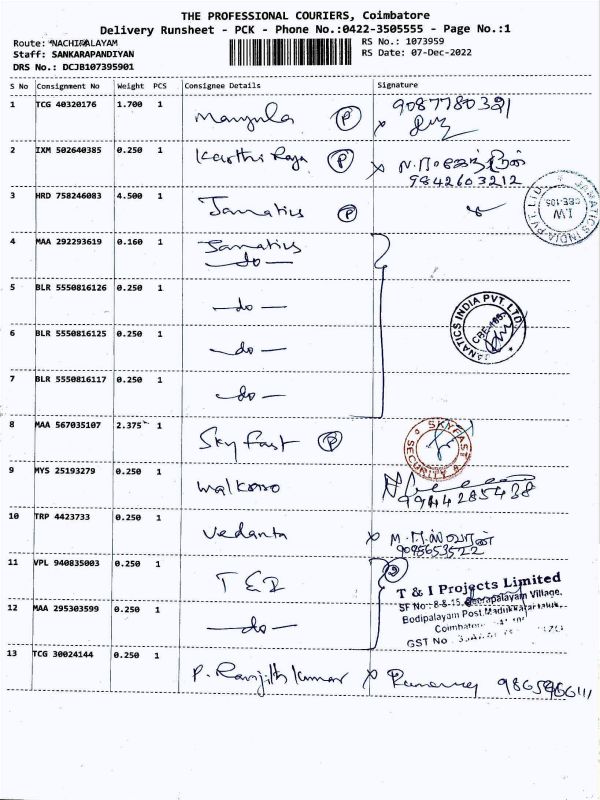 THE PROFESSIONAL COURIERS, Coimbatore
Delivery Runsheet - PCK - Phone No.:0422-3505555 - Page No.:1
Route: NACHIPALAYAM
Staff: SANKARAPANDIYAN
DRS No.: DCJB107395901
RS No.: 1073959
RS Date: 07-Dec-2022
S No Consignment No Weight PCS Consignee Details Signature
1 TCG 40320176 1.700 1 Manjula P 9087780321
2 IXM 502640385 0.250 1 Karthi Raja P x
9842603212
3 HRD 758246083 4.500 1 Janatics P
JANATICS INDIA PVT. LTD. I.W CBE-105
4 MAA 292293619 0.160 1 Janatics
-do-
5 BLR 5550816126 0.250 1 -do-
JANATICS INDIA PVT LTD.
6 BLR 5550816125 0.250 1 -do-
7 BLR 5550816117 0.250 1 -do-
8 MAA 567035107 2.375 1 Sky Fast P
SKYFAST SECURITY
9 MYS 25193279 0.250 1
9944285438
10 TRP 4423733 0.250 1 Vedanta x
9095653522
11 VPL 940835003 0.250 1 2
T & I Projects Limited
SF No: 8-8-15, Village,
12 MAA 295303599 0.250 1 -do-
Bodipalayam Post,
GST No
13 TCG 30024144 0.250 1 P. Ranjith Kumar x